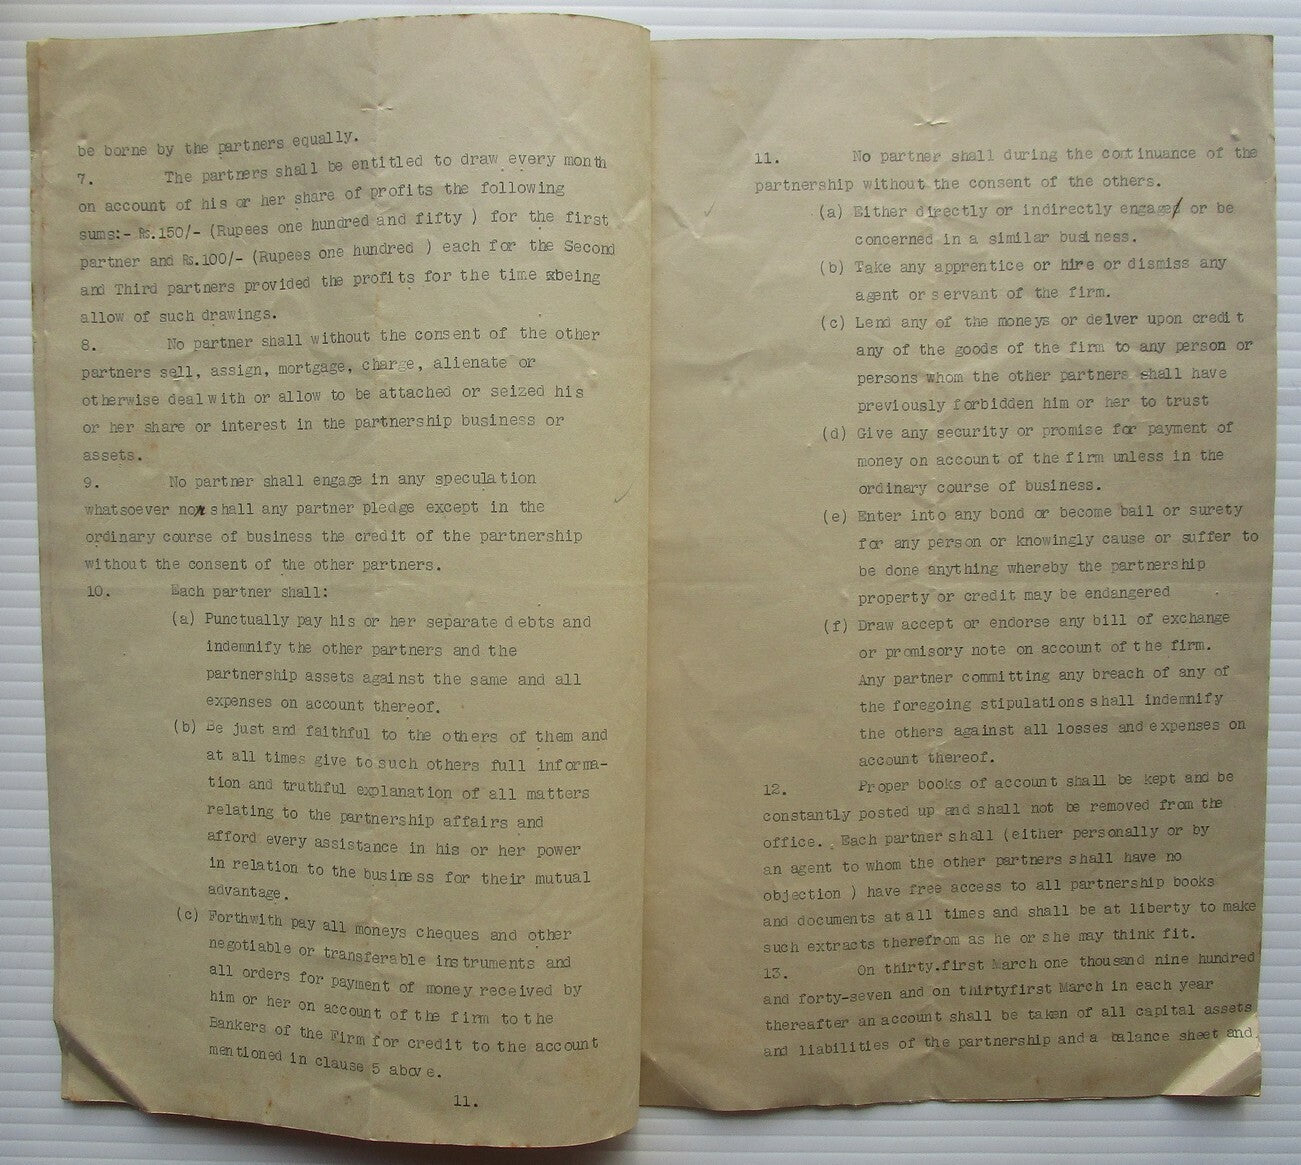 be borne by the partners equally.
7. The partners shall be entitled to draw every month
on account of his or her share of profits the following
sums:- Rs.150/- (Rupees one hundred and fifty ) for the first
partner and Rs.100/- (Rupees one hundred ) each for the Second
and Third partners provided the profits for the time xbeing
allow of such drawings.
8. No partner shall without the consent of the other
partners sell, assign, mortgage, charge, alienate or
otherwise deal with or allow to be attached or seized his
or her share or interest in the partnership business or
assets.
9. No partner shall engage in any speculation
whatsoever nor shall any partner pledge except in the
ordinary course of business the credit of the partnership
without the consent of the other partners.
10. Each partner shall:
(a) Punctually pay his or her separate debts and
indemnify the other partners and the
partnership assets against the same and all
expenses on account thereof.
(b) Be just and faithful to the others of them and
at all times give to such others full informa-
tion and truthful explanation of all matters
relating to the partnership affairs and
afford every assistance in his or her power
in relation to the business for their mutual
advantage.
(c) Forthwith pay all moneys cheques and other
negotiable or transferable instruments and
all orders for payment of money received by
him or her on account of the firm to the
Bankers of the Firm for credit to the account
mentioned in clause 5 above.
11.
11. No partner shall during the continuance of the
partnership without the consent of the others.
(a) Either directly or indirectly engage or be
concerned in a similar business.
(b) Take any apprentice or hire or dismiss any
agent or servant of the firm.
(c) Lend any of the moneys or deliver upon credit
any of the goods of the firm to any person or
persons whom the other partners shall have
previously forbidden him or her to trust
(d) Give any security or promise for payment of
money on account of the firm unless in the
ordinary course of business.
(e) Enter into any bond or become bail or surety
for any person or knowingly cause or suffer to
be done anything whereby the partnership
property or credit may be endangered
(f) Draw accept or endorse any bill of exchange
or promisory note on account of the firm.
Any partner committing any breach of any of
the foregoing stipulations shall indemnify
the others against all losses and expenses on
account thereof.
12. Proper books of account shall be kept and be
constantly posted up and shall not be removed from the
office. . Each partner shall (either personally or by
an agent to whom the other partners shall have no
objection ) have free access to all partnership books
and documents at all times and shall be at liberty to make
such extracts therefrom as he or she may think fit.
13. On thirty.first March one thousand nine hundred
and forty-seven and on thirtyfirst March in each year
thereafter an account shall be taken of all capital assets
and liabilities of the partnership and a balance sheet and